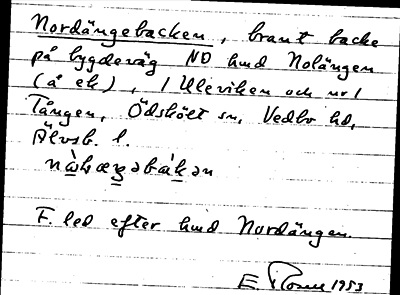 Nordängebacken, brant backe
på bygdeväg NO hmd Nolängen
(å ek), / Uleviken och nr 1
Tången, Ödskölt sn, Vedbo hd,
Älvsb. l.
nὼɫæŋəbákən
F. led efter hmd Nordängen.
E 1953